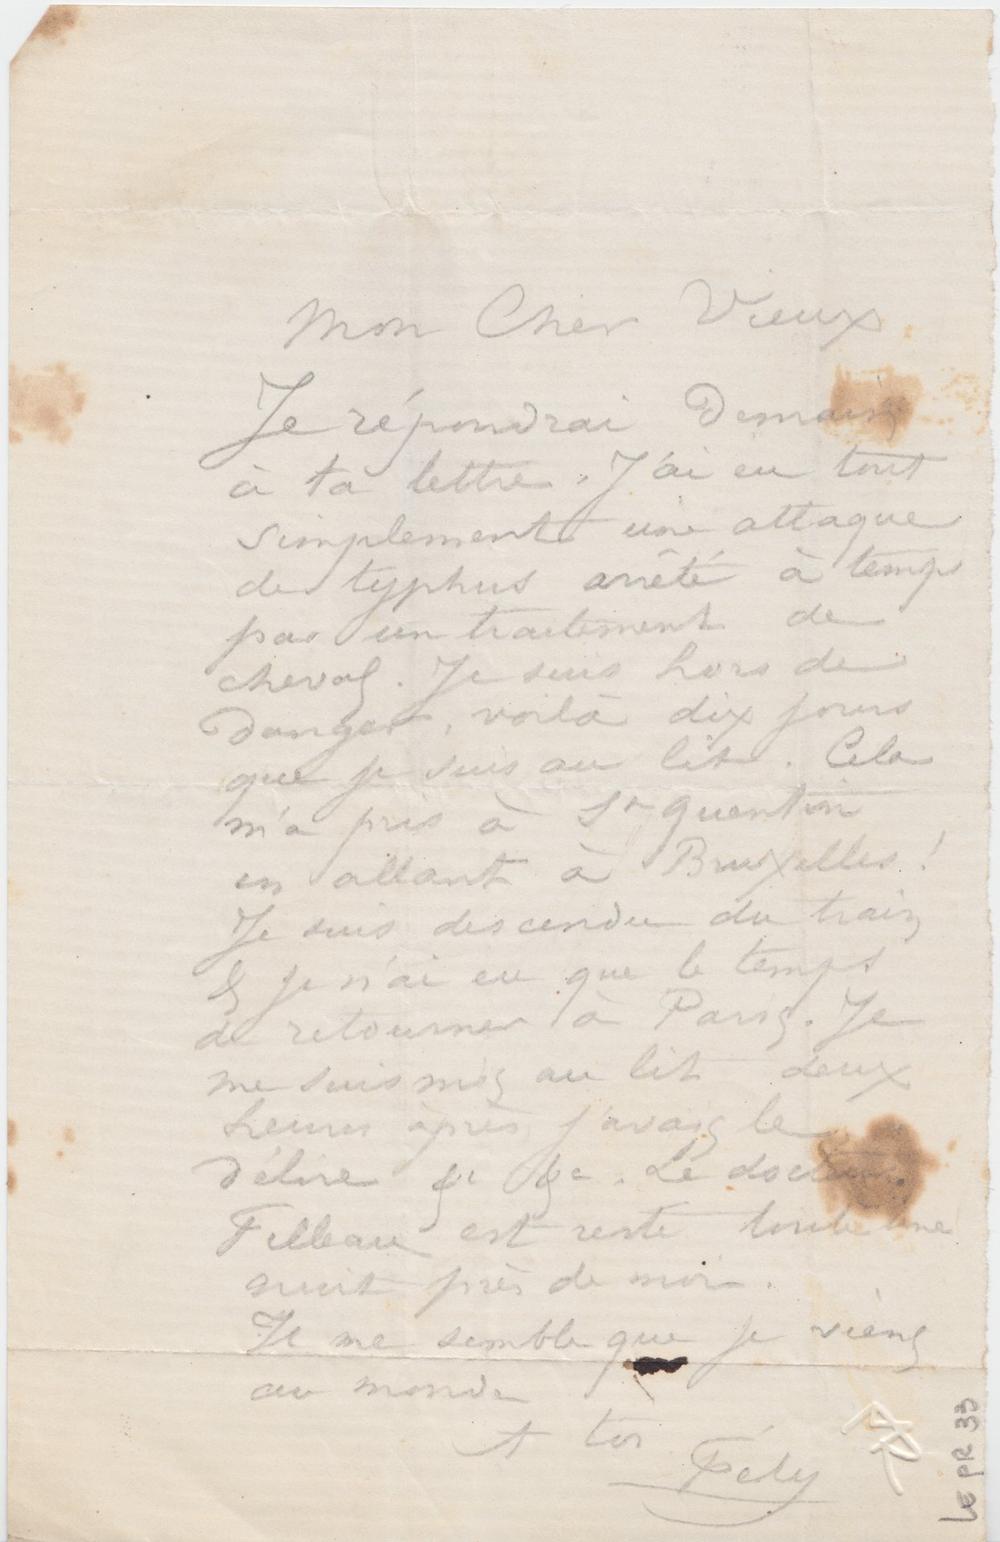 Mon Cher Vieux
Je répondrai Demain
à ta lettre. J'ai eu tout
simplement une attaque
de typhus arrêté à temps
par un traitement de
cheval. Je suis hors de
Danger, voilà dix jours
que je suis au lit. Cela
m'a pris à St Quentin
en allant à Bruxelles !
Je suis descendu du train
& je n'ai eu que le temps
de retourner à Paris. Je
me suis mis au lit deux
heures après j'avais le
Délire &c &c. Le docteur
Filleau est resté toute une
nuit près de moi.
Il me semble que je viens
au monde
A toi
Fély
LE PR 33